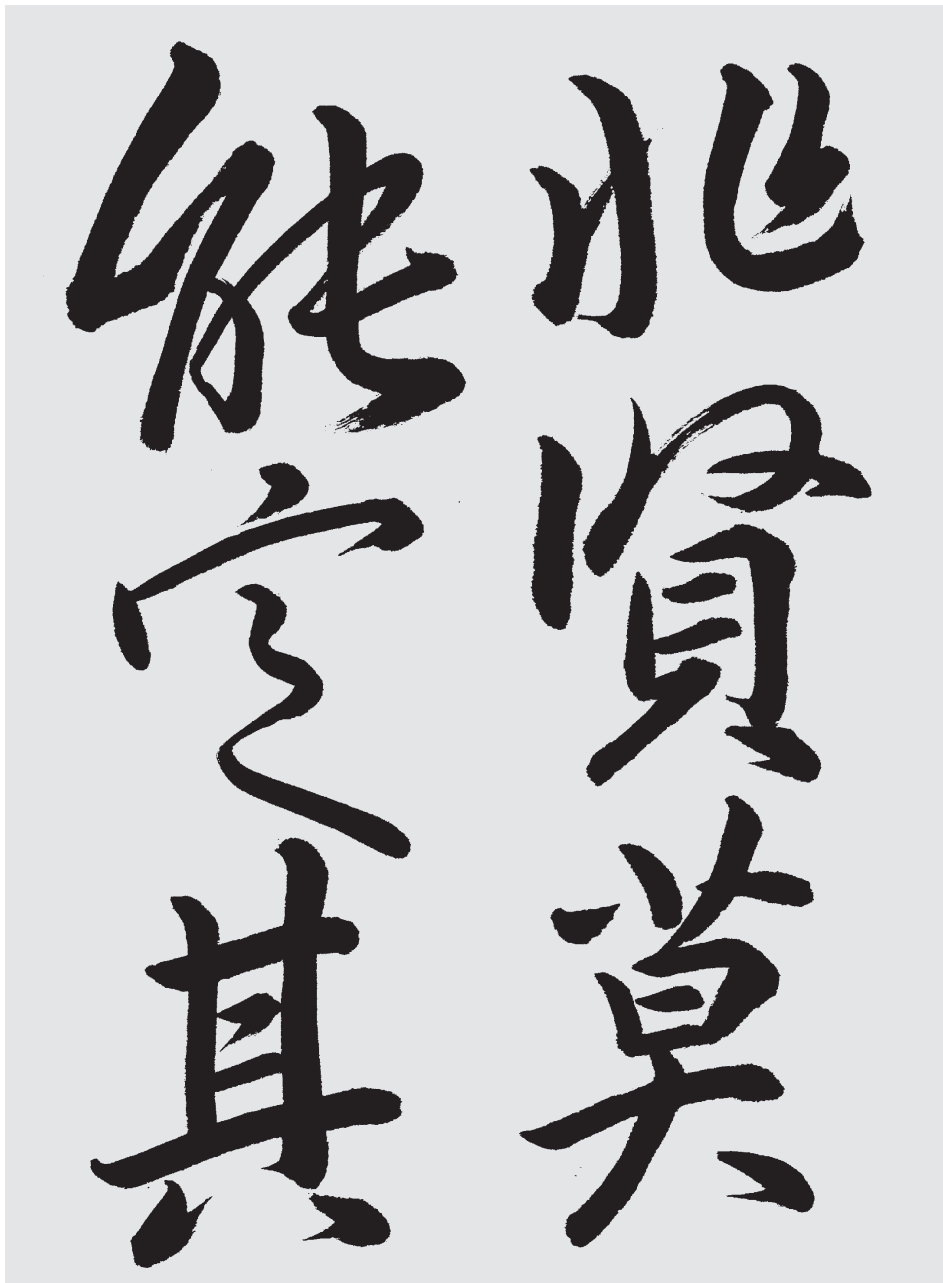 非賢莫
能定其